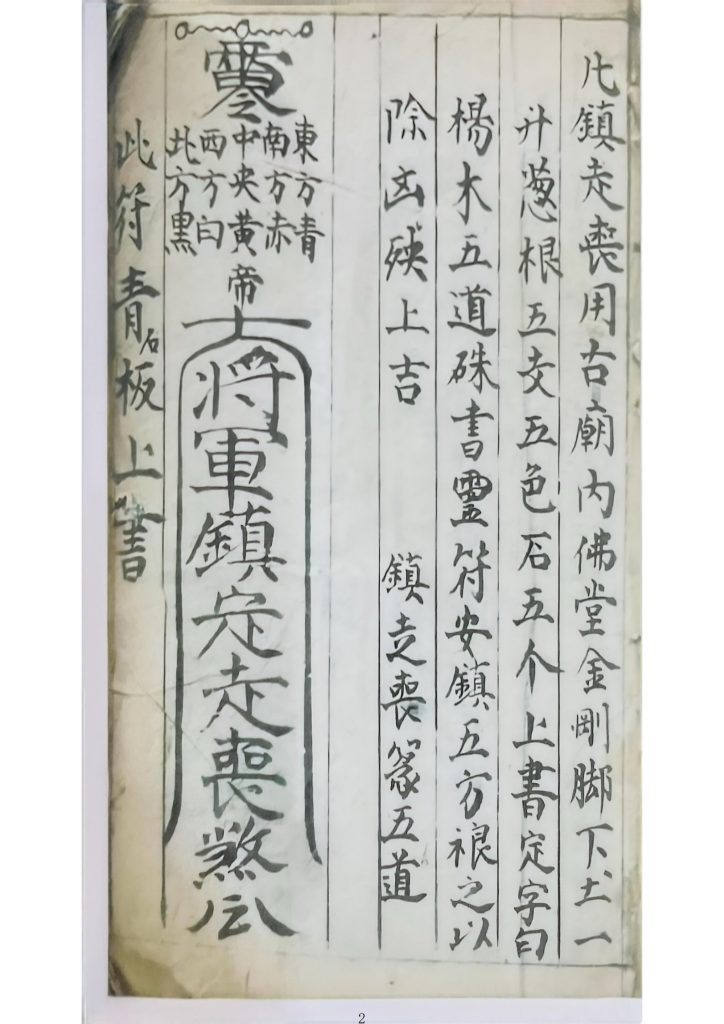 凢鎮走喪用古廟內佛堂金剛脚下土一
升葱根五支五色石五个上書定字句
楊木五道硃書靈符安鎮五方禳之以
除凶殃上吉
鎮走喪篆五道
東方青
南方赤
中央黄
西方白
北方黑
帝
將軍鎮定走喪煞
此符青石板上書
2